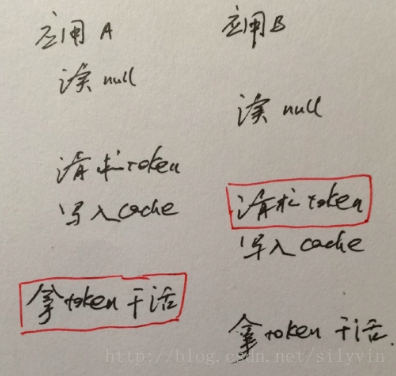 应用A
读 null
请求token
写入cache
拿token干活
应用B
读 null
请求token
写入cache
拿token干活
http://blog.csdn.net/silyvin